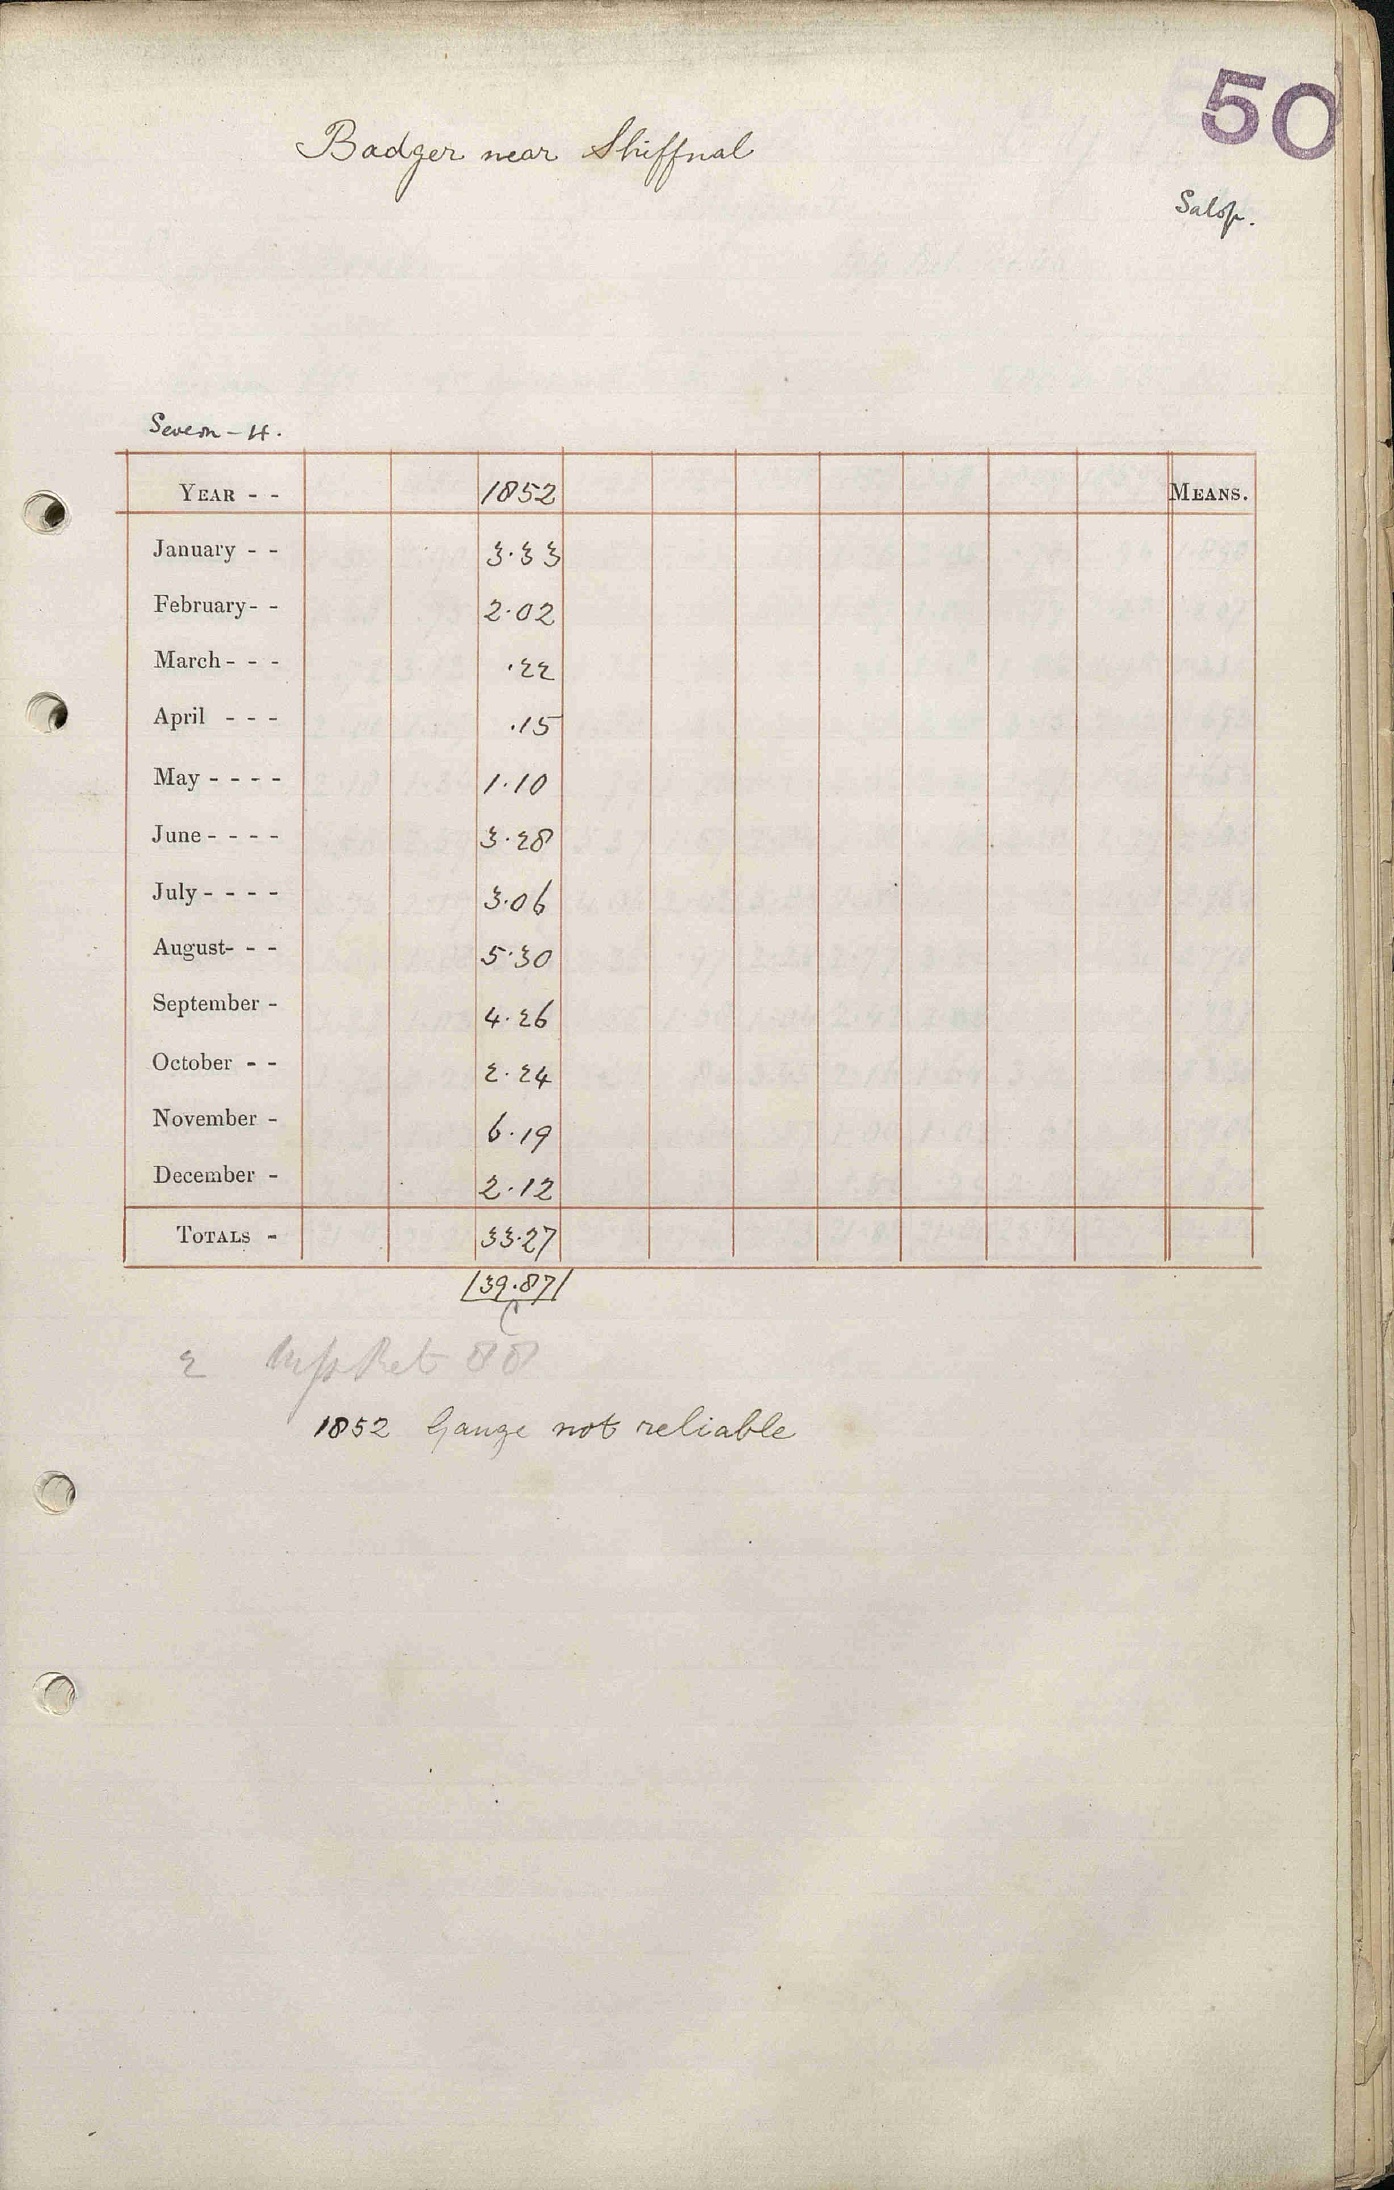 50
Badger near Shiffnal
Salop.
Severn - H.
YEAR - - 1852 MEANS.
January - - 3.33
February - - 2.02
March - - - .22
April - - - .15
May - - - - 1.10
June - - - - 3.28
July - - - - 3.06
August - - - 5.30
September - 4.26
October - - 2.24
November - 6.19
December - 2.12
TOTALS - 33.27
39.87
2 Ret 88
1852 Gauge not reliable